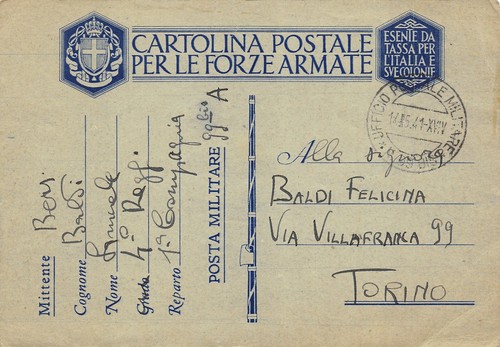 CARTOLINA POSTALE
PER LE FORZE ARMATE
ESENTE DA
TASSA PER
L'ITALIA E
SVE COLONIE
UFFICIO POSTALE MILITARE
Mittente
Cognome Baldi
Nome
Grado
Reparto 1ª Compagnia
POSTA MILITARE 99 bis A
Alla signora
BALDI FELICINA
VIA VILLAFRANCA 99
TORINO